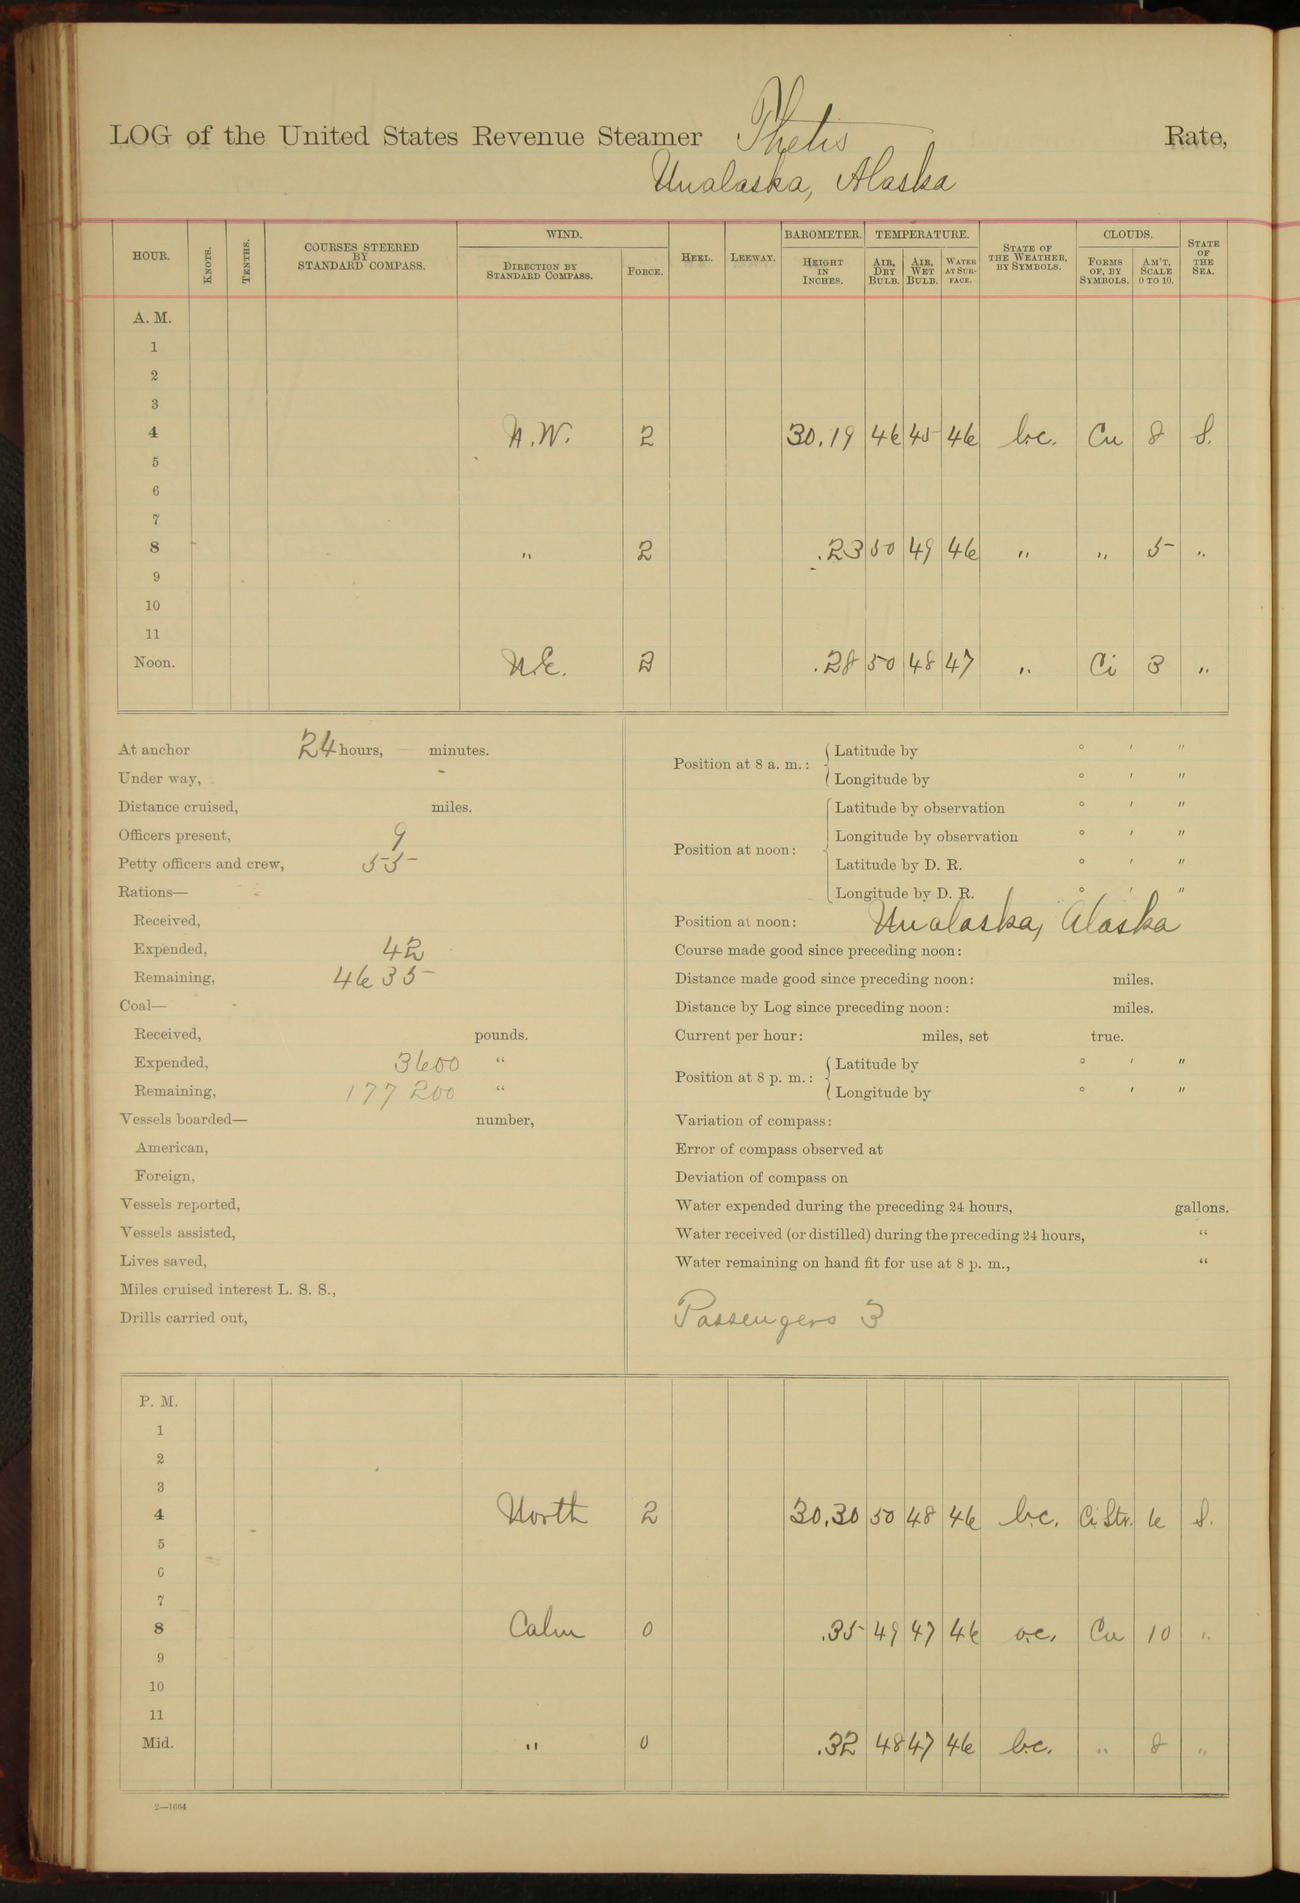 LOG of the United States Revenue Steamer Thetis Rate,
Unalaska, Alaska
HOUR. KNOTS. TENTHS. COURSES STEERED BY STANDARD COMPASS. WIND. DIRECTION BY STANDARD COMPASS. FORCE. HEEL. LEEWAY. BAROMETER. HEIGHT IN INCHES. TEMPERATURE. AIR, DRY BULB. AIR, WET BULB. WATER AT SURFACE. STATE OF THE WEATHER, BY SYMBOLS. CLOUDS. FORMS OF, BY SYMBOLS. AM'T, SCALE 0 TO 10. STATE OF THE SEA.
A. M.
1
2
3
4 N.W. 2 30.19 46 45 46 b.c. Cu 8 S.
5
6
7
8 " 2 .23 50 49 46 " " 5 "
9
10
11
Noon. N.E. 2 .28 50 48 47 " Ci 3 "
At anchor 24 hours, — minutes.
Under way,
Distance cruised, miles.
Officers present, 9
Petty officers and crew, 55
Rations—
Received,
Expended, 42
Remaining, 4635
Coal—
Received, pounds.
Expended, 3600 "
Remaining, 177200 "
Vessels boarded— number,
American,
Foreign,
Vessels reported,
Vessels assisted,
Lives saved,
Miles cruised interest L. S. S.,
Drills carried out,
Position at 8 a. m.: Latitude by ° ' "
Longitude by ° ' "
Position at noon: Latitude by observation ° ' "
Longitude by observation ° ' "
Latitude by D. R. ° ' "
Longitude by D. R. ° ' "
Position at noon: Unalaska, Alaska
Course made good since preceding noon:
Distance made good since preceding noon: miles.
Distance by Log since preceding noon: miles.
Current per hour: miles, set true.
Position at 8 p. m.: Latitude by ° ' "
Longitude by ° ' "
Variation of compass:
Error of compass observed at
Deviation of compass on
Water expended during the preceding 24 hours, gallons.
Water received (or distilled) during the preceding 24 hours, "
Water remaining on hand fit for use at 8 p. m., "
Passengers 3
P. M.
1
2
3
4 North 2 30.30 50 48 46 b.c. Ci Str. 6 S.
5
6
7
8 Calm 0 .35 49 47 46 o.c. Cu 10 "
9
10
11
Mid. " 0 .32 48 47 46 b.c. " 8 "
2—1664